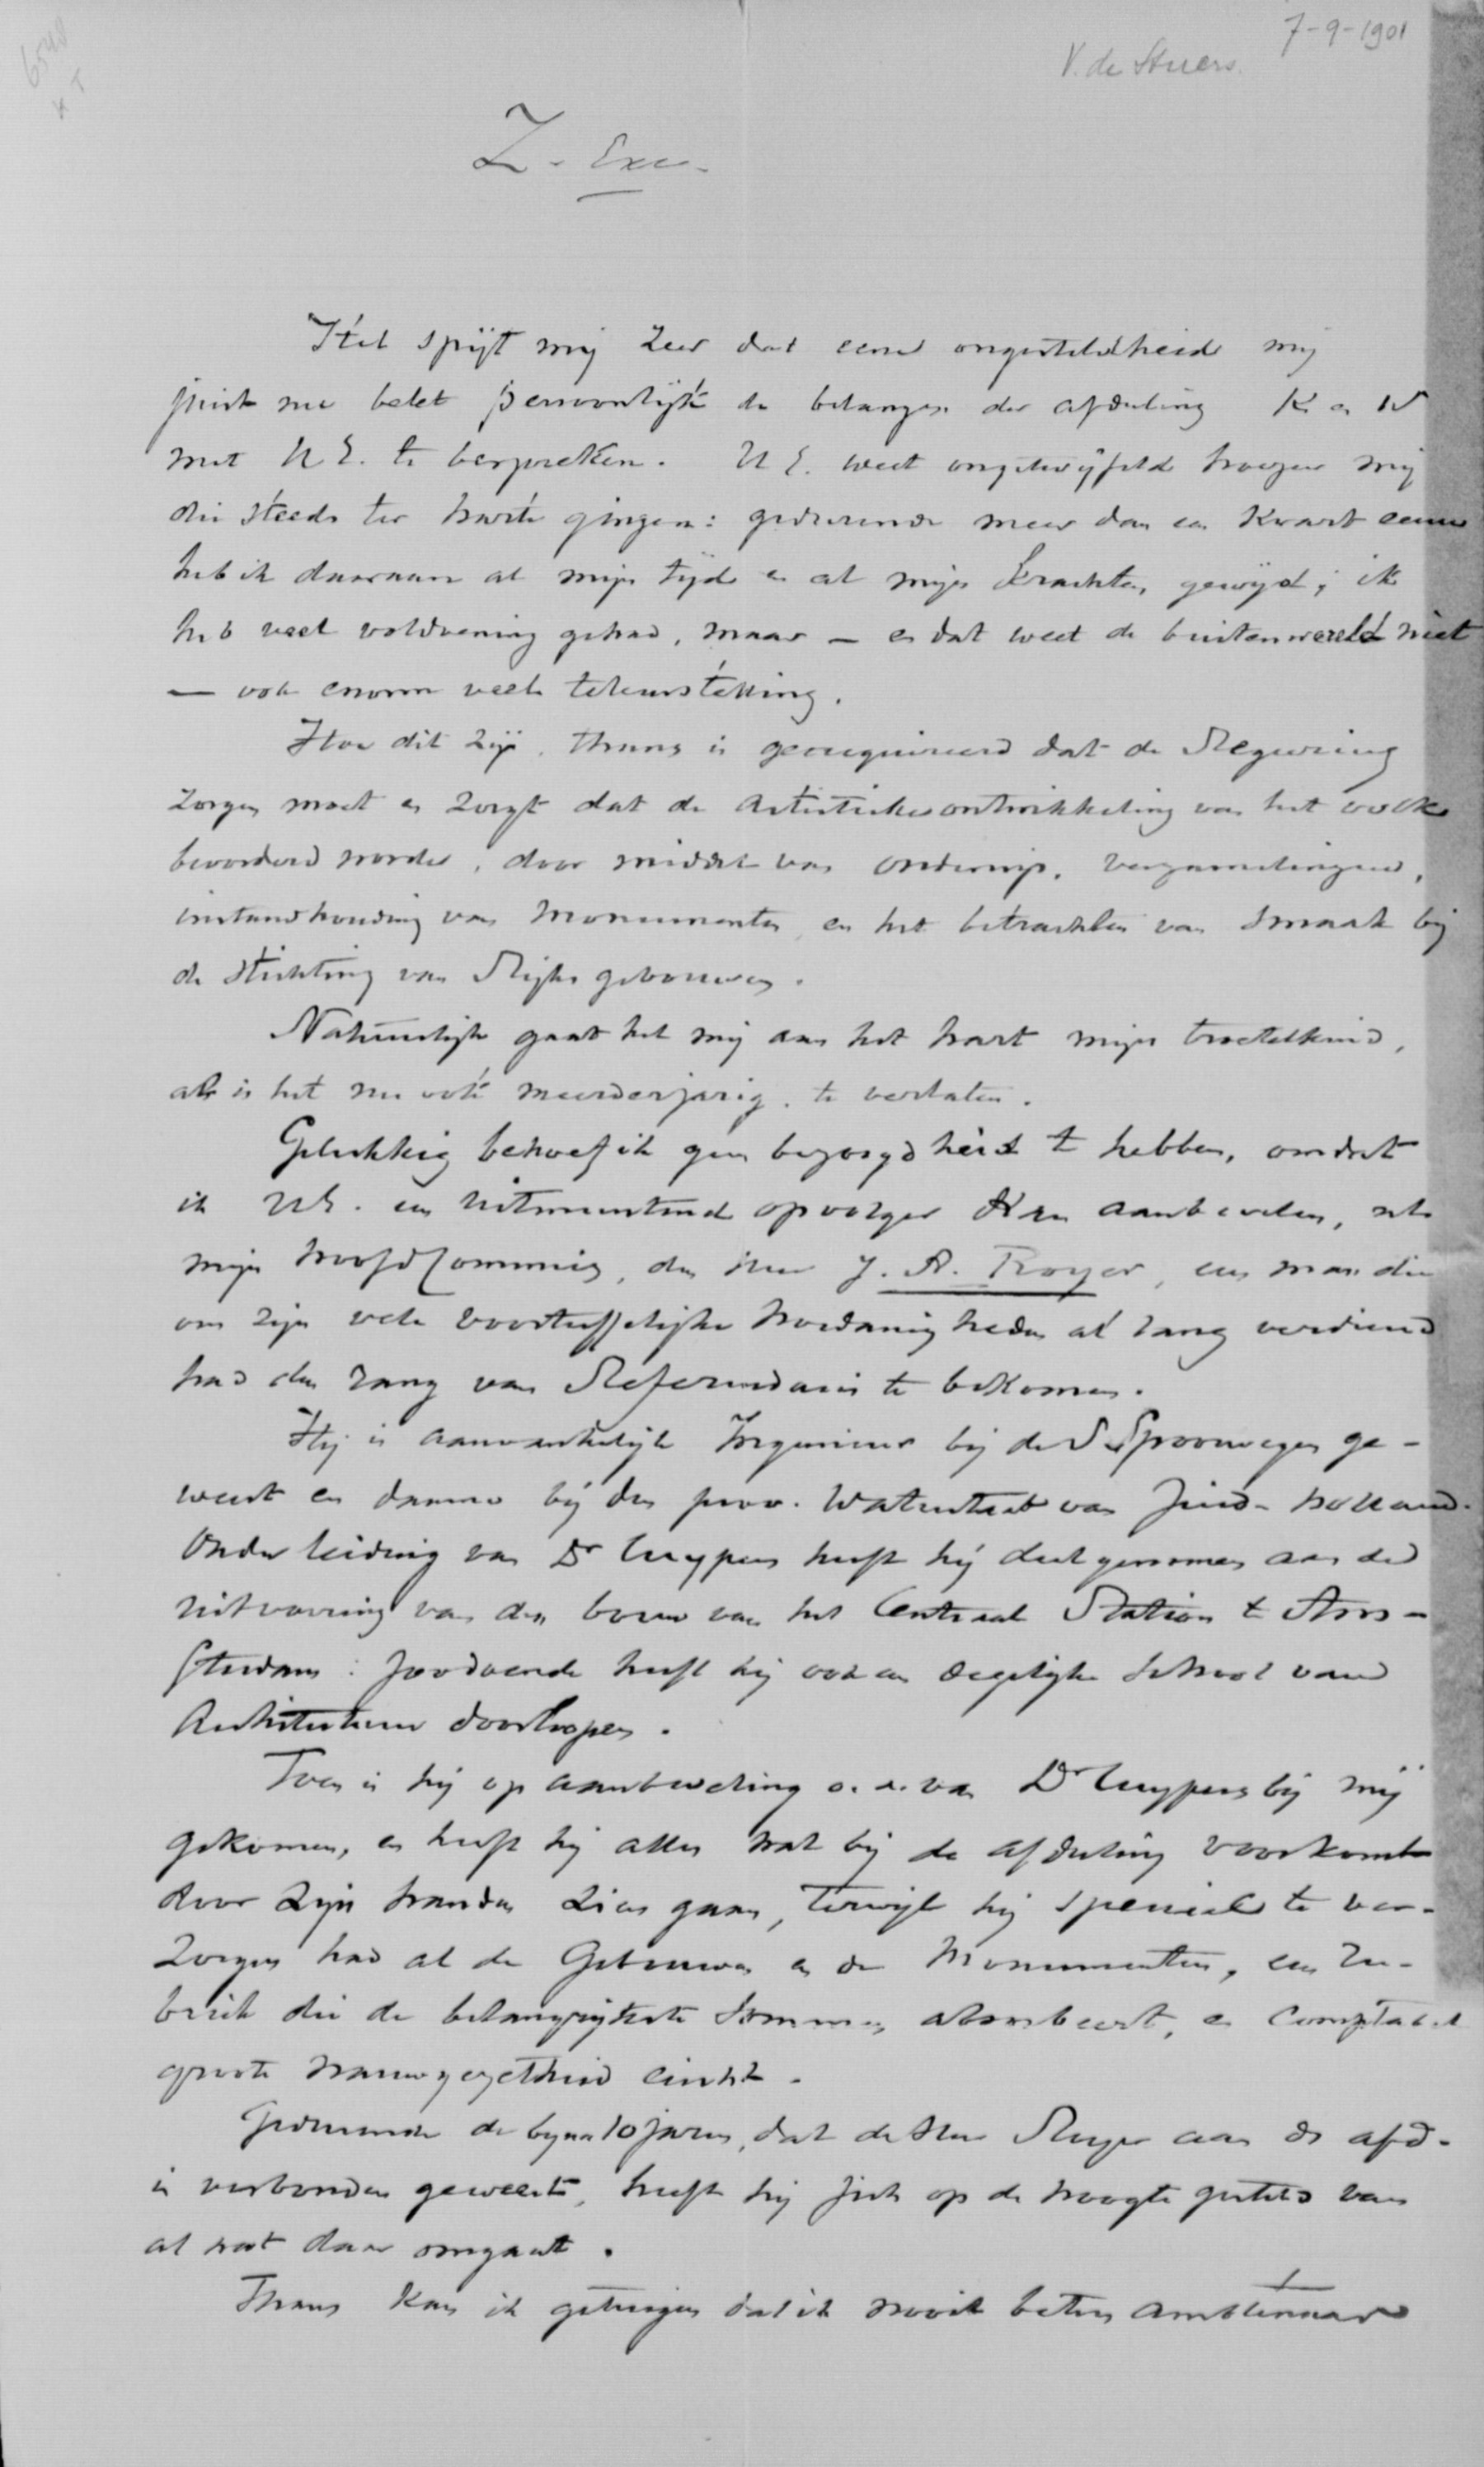 7-9-1901
V. de Stuers.
Z. Exc.
Het spijt mij zeer dat eene ongesteldheid mij
juist nu belet persoonlijk de belangen der afdeeling K en W
met U E. te bespreken. U E. weet ongetwijfeld hoezeer mij
die steeds ter harte gingen: gedurende meer dan een kwart eeuw
heb ik daaraan al mijn tijd en al mijn krachten gewijd; ik
heb veel voldoening gehad, maar — en dat weet de buitenwereld niet
— ook enorm veel teleurstelling.
Hoe dit zij, thans is gerequireerd dat de Regeering
zorgen moet en zorgt dat de artistieke ontwikkeling van het volk
bevorderd worde, door middel van onderwijs, verzamelingen,
instandhouding van monumenten, en het betrachten van smaak bij
de stichting van Rijks gebouwen.
Natuurlijk gaat het mij aan het hart mijn troetelkind,
al is het nu ook meerderjarig, te verlaten.
Gelukkig behoef ik geen bezorgdheid te hebben, omdat
ik UE. een uitmuntend opvolger kan aanbevelen, nl.
mijn hoofdcommies, den heer J. A. Royer, een man die
om zijn vele voortreffelijke hoedanigheden al lang verdiend
had den rang van Referendaris te bekomen.
Hij is aanvankelijk Ingenieur bij de S Spoorwegen ge-
weest en daarna bij den prov. Waterstaat van Zuid-Holland.
Onder leiding van Dr Cuypers heeft hij deel genomen aan de
uitvoering van den bouw van het Centraal Station te Am-
sterdam: zoodoende heeft hij ook een degelijke school van
Architectuur doorloopen.
Toen is hij op aanbeveling o. a. van Dr Cuypers bij mij
gekomen, en heeft hij alles wat bij de afdeeling voorkomt
door zijn handen zien gaan, terwijl hij speciaal te ver-
zorgen had al de Gebouwen en de Monumenten, een ru-
briek die de belangrijkste sommen absorbeert, en
groote nauwgezetheid eischt.
Gedurende de bijna 10 jaren, dat de Heer Royer aan de afd.
is verbonden geweest, heeft hij zich op de hoogte gesteld van
al wat daar omgaat.
Thans kan ik getuigen dat ik nooit beter ambtenaar